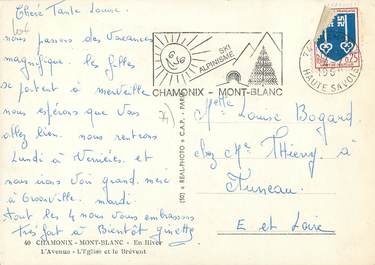 Chère Tante Louise.
nous passons des vacances
magnifique. les filles
se portent à merveille
nous espérons que vous
allez bien. nous rentrons
Lundi à
et nous irons voir grand. mère
à mardi.
tout les 4 nous vous embrassons
très fort à Bientôt ginette
40 CHAMONIX - MONT-BLANC - En Hiver
L'Avenue - L'Eglise et le Brévent
SKI
ALPINISME
CHAMONIX - MONT-BLANC
HAUTE SAVOIE
0,25
REAL-PHOTO
C.A.P. - PARIS
Melle Louise Bogard
chez Mr Thierry à
Tuneau
E et Loire